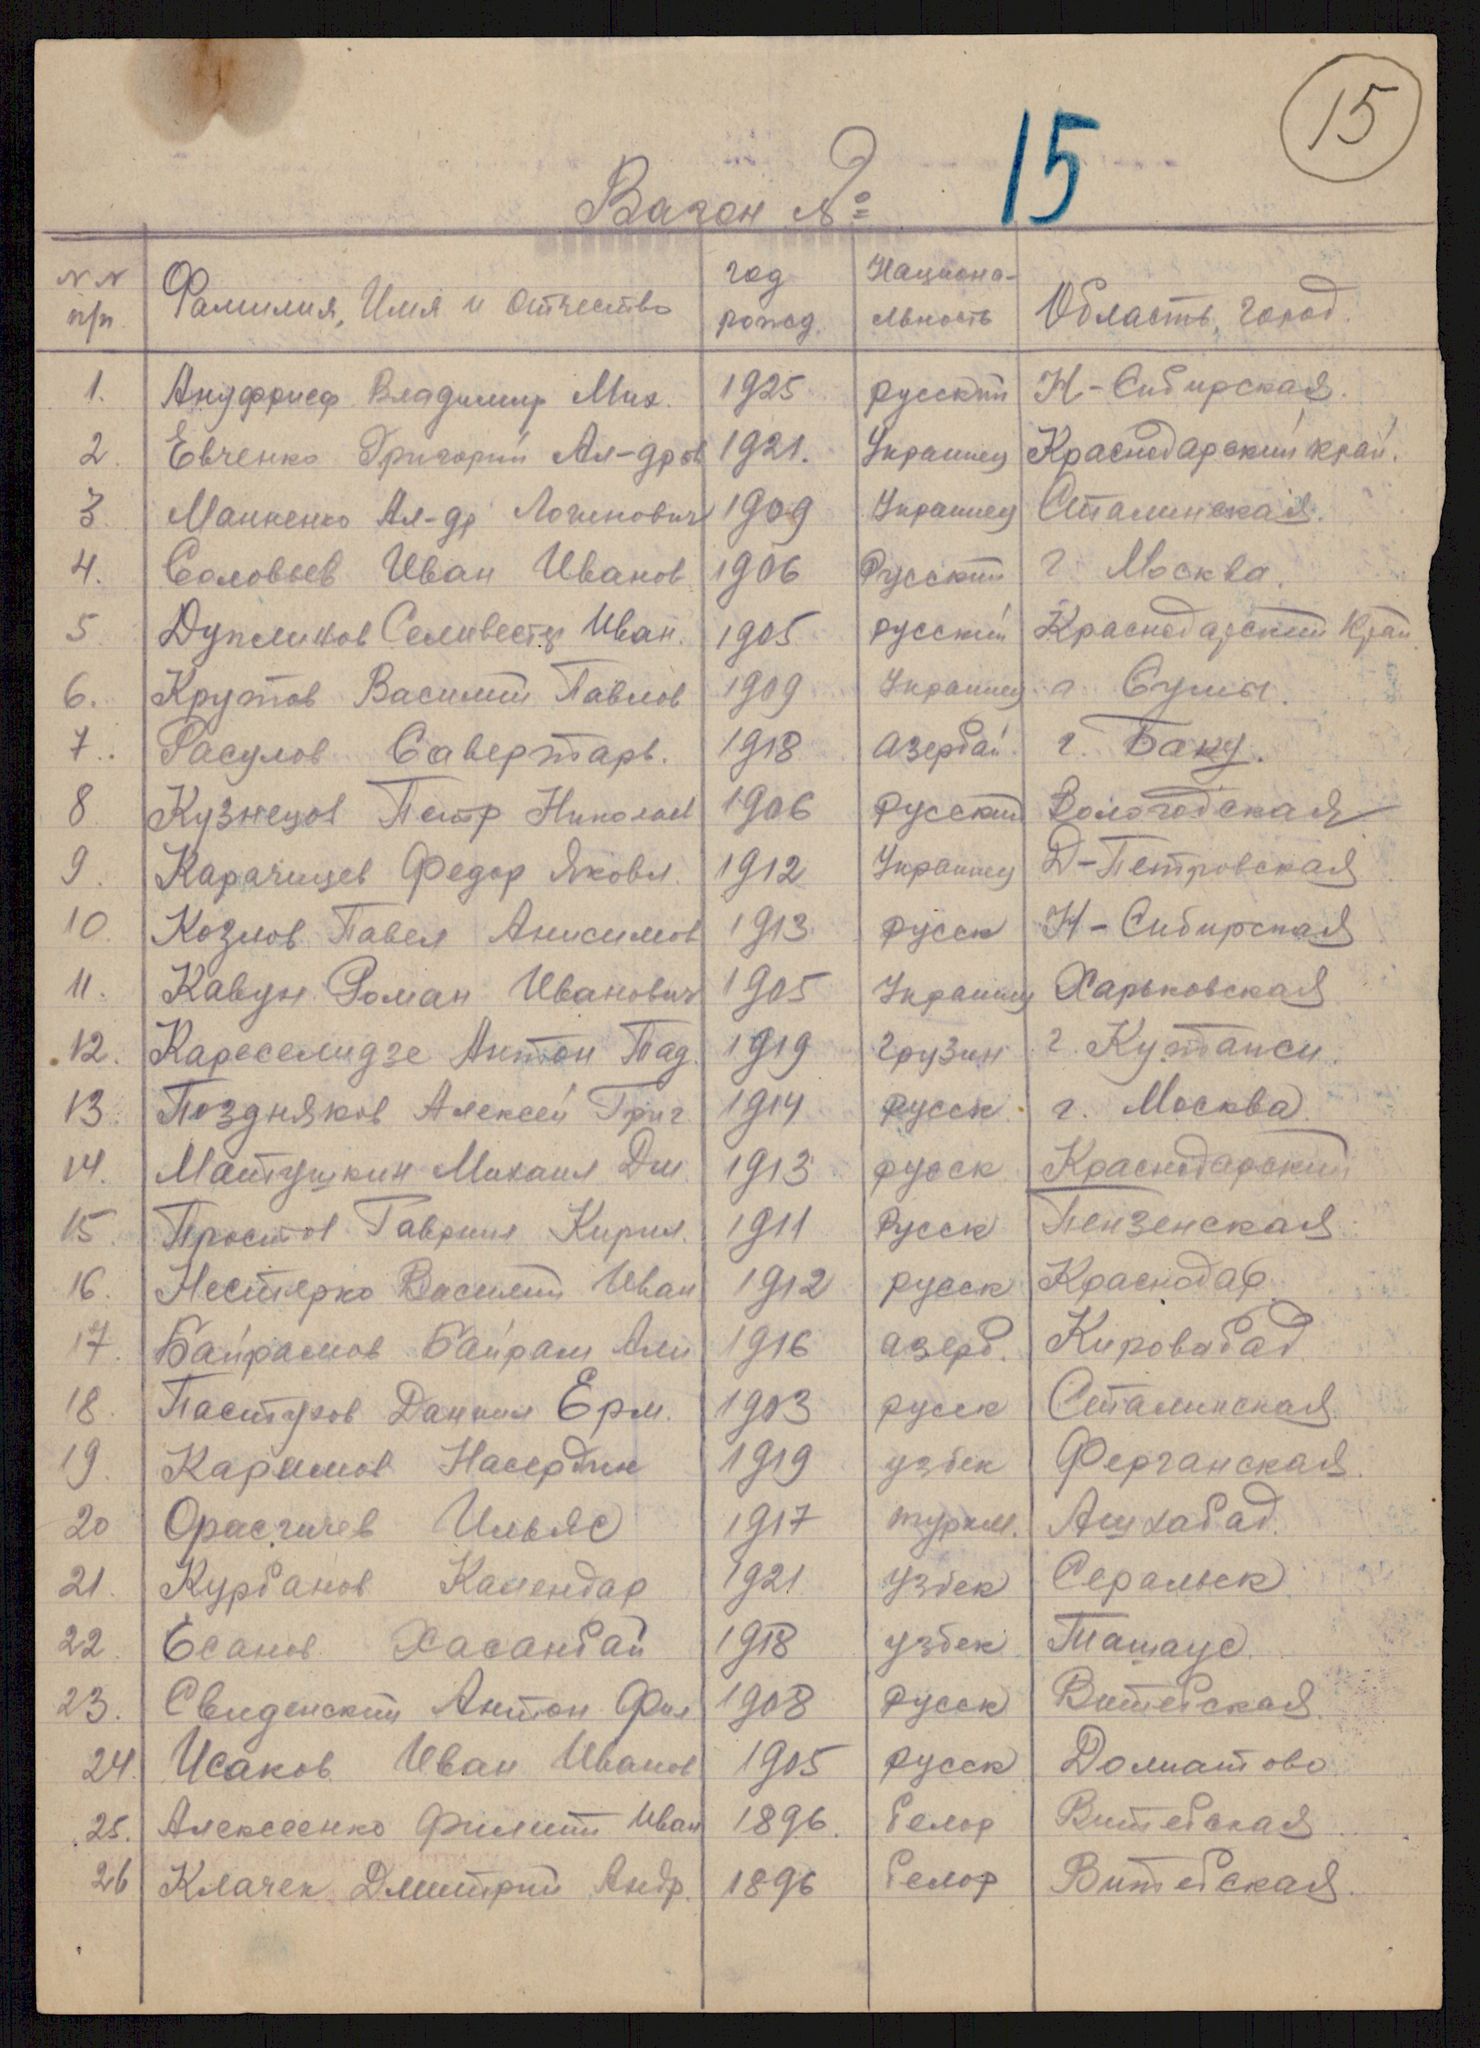 15
Вагон № 15
NN п/п Фамилия, Имя и Отчество год рожд. Национальность Область, город.
1. Ануфриеф Владимир Мих. 1925 русский Н-Сибирская.
2. Евченко Григорий Ал-дров 1921. Украинец Краснодарский край.
3. Манкенко Ал-др Логинович 1909 Украинец Сталинская.
4. Соловьев Иван Иванов 1906 Русский г Москва.
5 Дупликов Селивестр Иван. 1905 русский Краснодарский Край
6. Крутов Василий Павлов 1909 Украинец г Сумы.
7. Расулов 1918 Азербай. г. Баку.
8 Кузнецов Петр Николаев 1906 русский Вологодская
9. Карачицев Федор Яковл. 1912 Украинец Д-Петровская
10. Козлов Павел Анисимов 1913 русск Н-Сибирская
11. Кавун Роман Иванович 1905 Украинец Харьковская
12. Кареселидзе Антон Пад. 1919 грузин г. Кутаиси.
13. Поздняков Алексей Григ 1914 русск. г. Москва
14. Матушкин Михаил Дм. 1913 русск Краснодарский
15. Простов Гаврил Кирил. 1911 Русск Пензенская
16. Нестерко Василий Иван 1912 русск Краснодар
17. Байрамов Байрам Али 1916 азерб. Кировабад
18. Пастухов Даниил Ерм. 1903 русск Сталинская
19. Каримов Насердин 1919 узбек Ферганская.
20 Ильяс 1917 туркм. Ашхабад.
21. Курбанов Календар 1921 узбек
22. Есанов Хасанбай 1918 узбек Ташауз.
23. Свиденский Антон Фил 1908 русск Витебская.
24. Исаков Иван Иванов 1905 русск Долматово
25. Алексеенко Филипп Иван 1896. белор Витебская
26 Клачек Дмитрий Андр. 1896 белор Витебская.